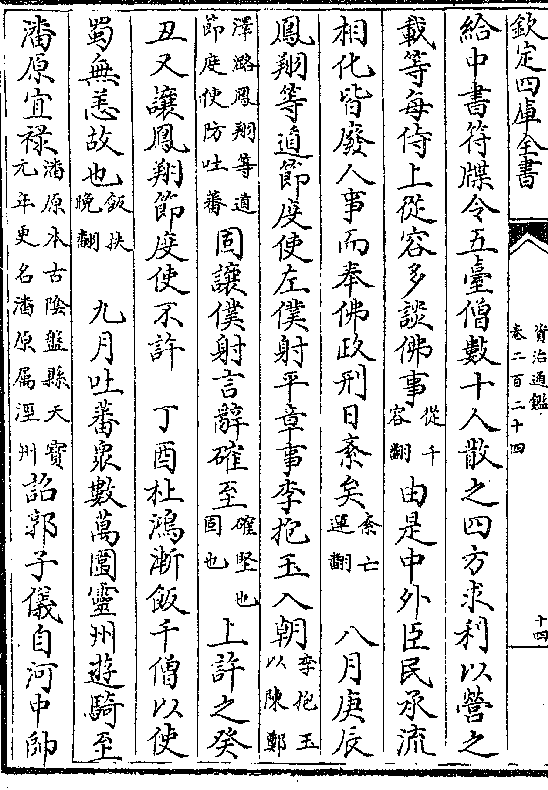 欽定四庫全書
資治通鑑
卷二百二十四
十四
給中書符牒令五臺僧數十人散之四方求利以營之
載等每侍上從容多談佛事從千容翻由是中外臣民承流
相化皆廢人事而奉佛政刑日紊矣紊亡運翻 八月庚辰
鳳翔等道節度使左僕射平章事李抱玉入朝李抱玉以陳鄭
澤潞鳳翔等道節度使防吐蕃固讓僕射言辭確至確堅也固也上許之癸
丑又讓鳳翔節度使不許 丁酉杜鴻漸飯千僧以使
蜀無恙故也飯扶晚翻 九月吐蕃衆數萬圍靈州遊騎至
潘原宜祿潘原本古陰盤縣天寶元年更名潘原屬涇州詔郭子儀自河中帥